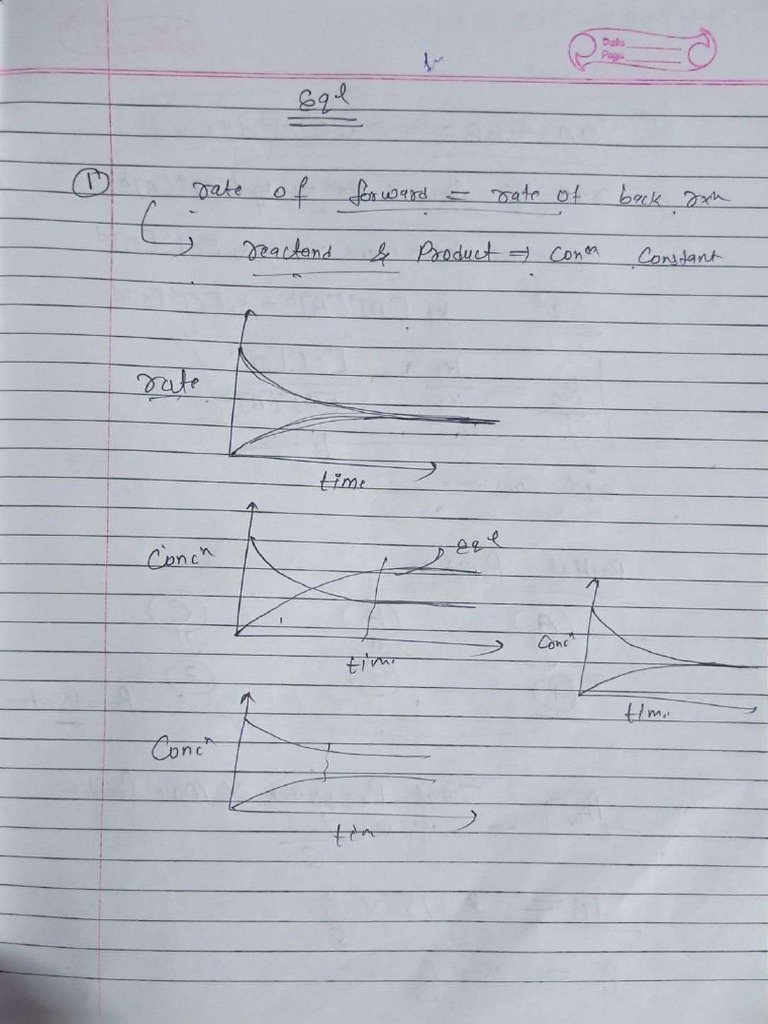 Date
Page
Eql
① rate of forward = rate of back rxn
reactand & Product ⇒ Conⁿ Constant
rate
time
Concⁿ
eql
time
Concⁿ
time
Concⁿ
tim